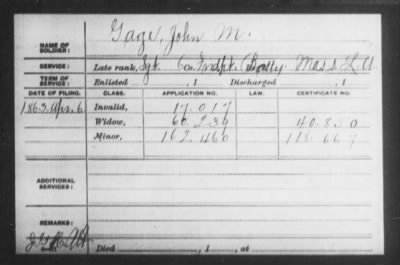 NAME OF SOLDIER: Gage, John M.
SERVICE: Late rank, Sgt. Co. Indpt. Batty. Mass L A
TERM OF SERVICE: Enlisted , 1 Discharged , 1
DATE OF FILING. CLASS. APPLICATION NO. LAW. CERTIFICATE NO.
1862. Apr. 6 Invalid, 17.017
Widow, 60.239 40.830
Minor, 162.460 118.667
ADDITIONAL SERVICES:
REMARKS:
Died , 1 , at